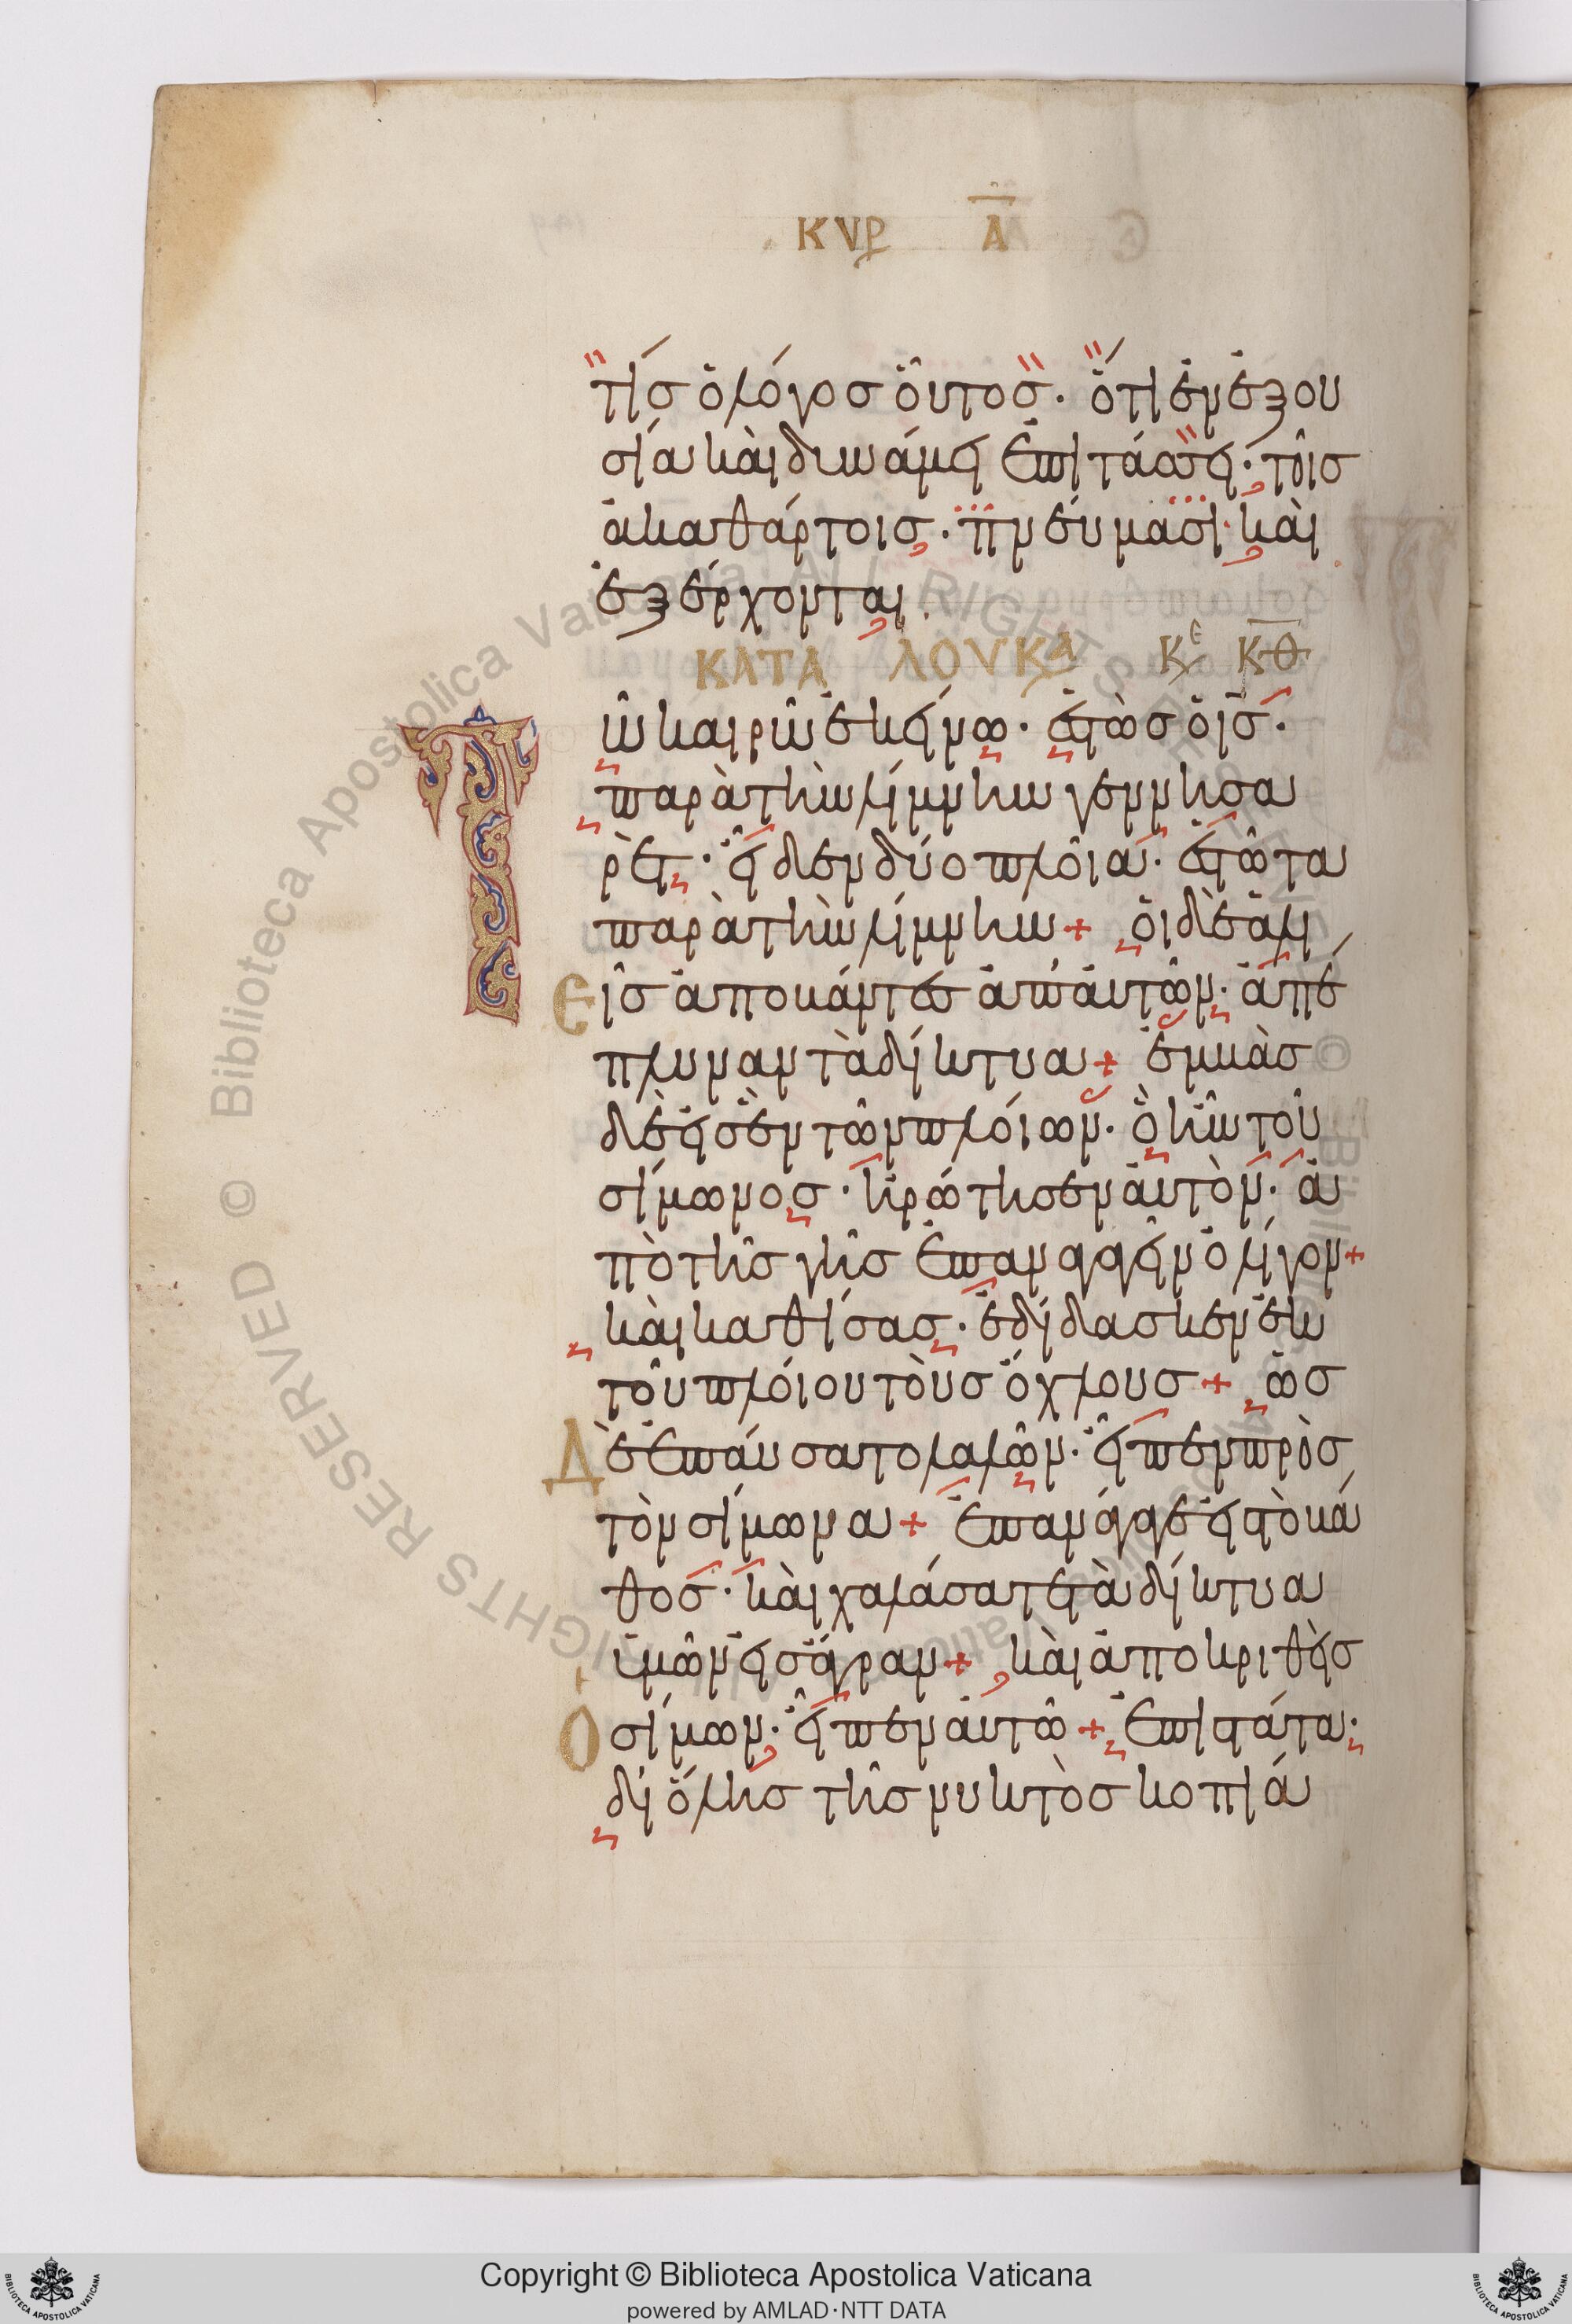 ΚΥΡ Α
τίσ ὁ λόγοσ οὗτοσ· ὅτι ἐν ἐξου
σία καὶ δυνάμει ἐπιτάσσει· τοῖσ
ἀκαθάρτοισ· πνεύμασι· καὶ
ἐξέρχονται
ΚΑΤΑ ΛΟΥΚΑ ΚΕ ΚΘ
Τῶ καιρῶ ἐκείνω· ἑστὼσ ὁ ισ·
παρὰ τὴν λίμνην γεννησα
ρέτ· εἶδεν δύο πλοῖα· ἑστῶτα
παρὰ τὴν λίμνην + οἱ δὲ ἁλι
εῖσ ἀποβάντεσ ἀπ' αὐτῶν· ἀπέ
πλυναν τὰ δίκτυα + ἐμβὰσ
δὲ εἰσ ἓν τῶν πλοίων· ὃ ἦν τοῦ
σίμωνοσ· ἠρώτησεν αὐτὸν· ἀ
πὸ τῆσ γῆσ ἐπαναγαγεῖν ὀλίγον +
καὶ καθίσασ· ἐδίδασκεν ἐκ
τοῦ πλοίου τοὺσ ὄχλουσ + ὡσ
Δὲ ἐπαύσατο λαλῶν· εἶπεν πρὸσ
τὸν σίμωνα + ἐπανάγαγε εἰσ τὸ βά
θοσ· καὶ χαλάσατε τὰ δίκτυα
ὑμῶν εἰσ ἄγραν + καὶ ἀποκριθεὶσ
Ὁ σίμων· εἶπεν αὐτῶ + ἐπιστάτα·
δι' ὅλησ τῆσ νυκτὸσ κοπιά
© Biblioteca Apostolica Vaticana ALL RIGHTS RESERVED
Copyright © Biblioteca Apostolica Vaticana
powered by AMLAD·NTT DATA
BIBLIOTECA APOSTOLICA VATICANA
BIBLIOTECA APOSTOLICA VATICANA